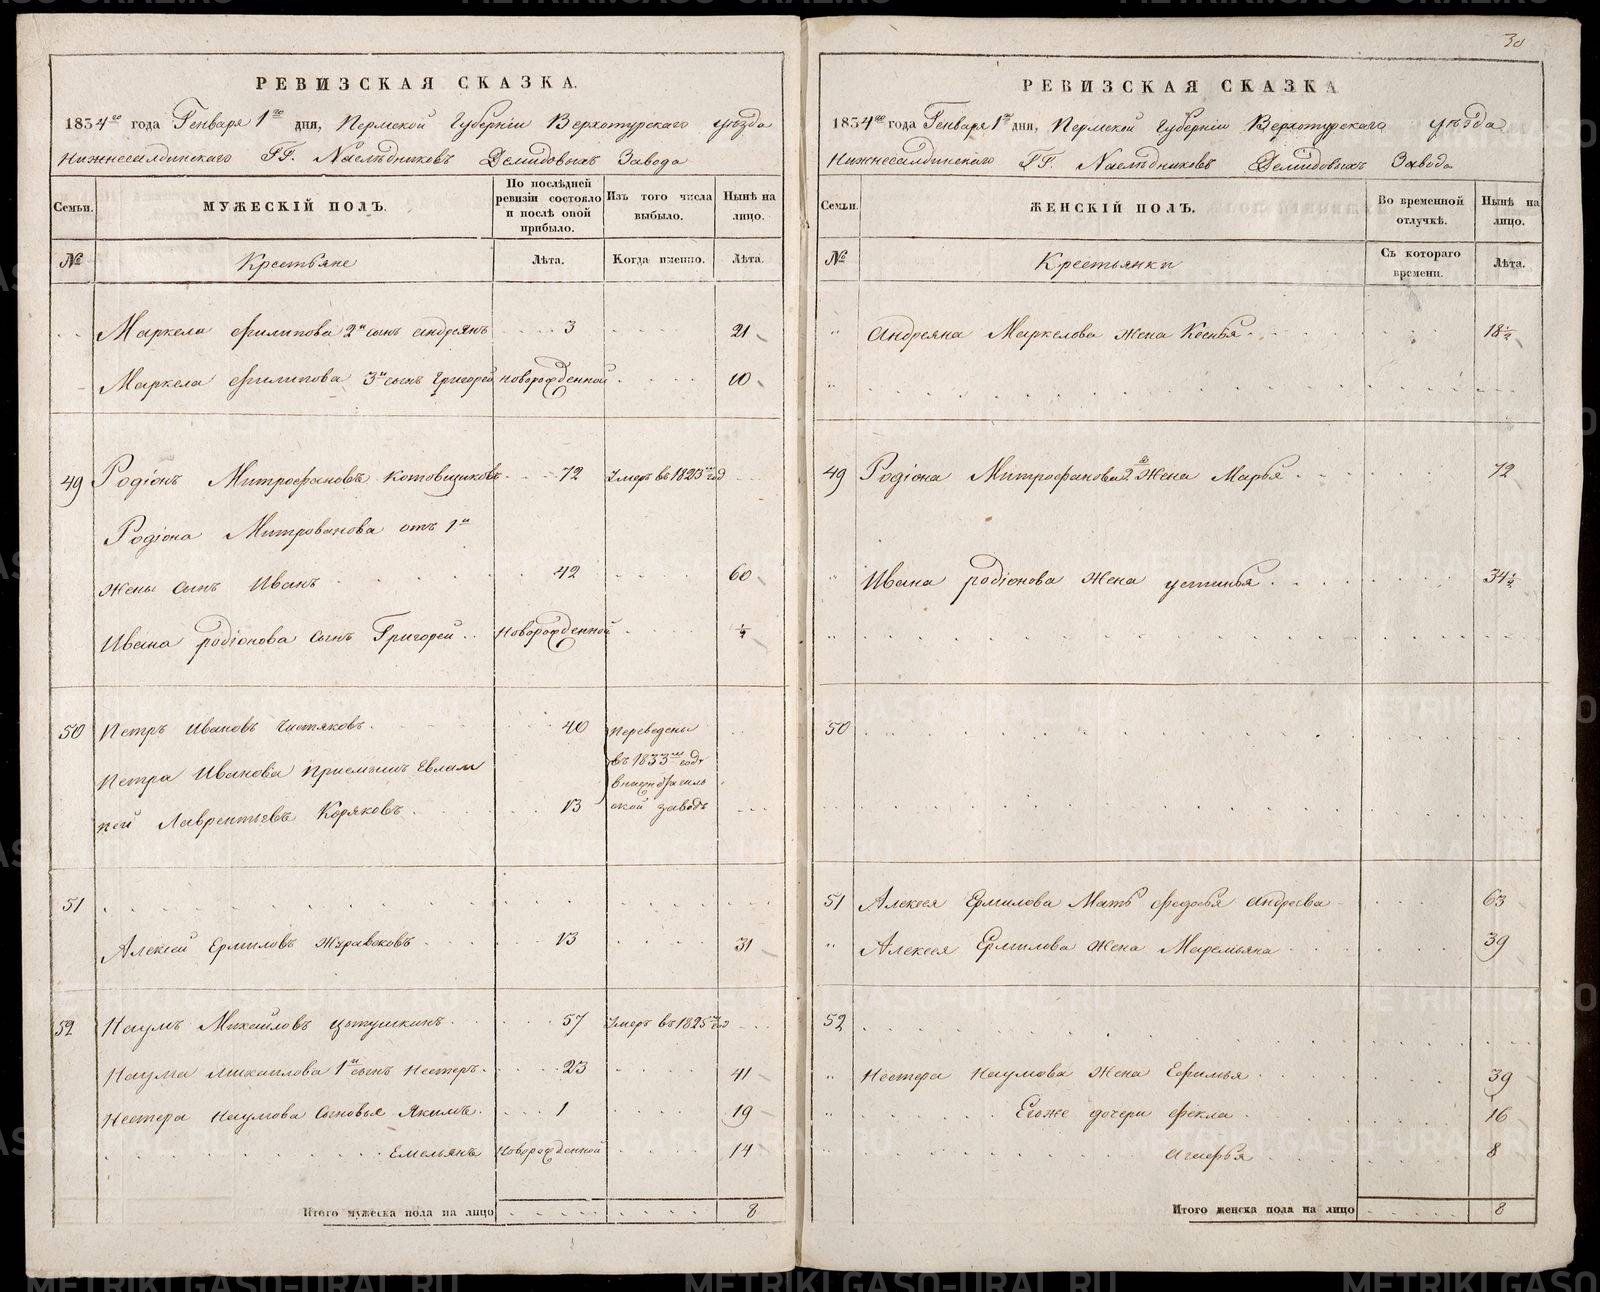 30
РЕВИЗСКАЯ СКАЗКА.
1834го года Генваря 1го дня, Пермской Губерніи Верхотурскаго уѣзда
Нижнесалдинскаго ГГ. Наслѣдниковъ Демидовыхъ Завода
Семьи.
МУЖЕСКІЙ ПОЛЪ.
По послѣдней ревизіи состояло и послѣ оной прибыло.
Изъ того числа выбыло.
Нынѣ на лицо.
№
Крестьяне
Лѣта.
Когда именно.
Лѣта.
Маркела Филипова 2й сынъ андреянъ 3 21
Маркела Филипова 3й сынъ Григорей новорожденной 10
49 Родіонъ Митрофановъ Котовщиковъ 72 Умеръ въ 1823м год
Родіона Митрованова отъ 1й
жены сынъ Иванъ 42 60
Ивана родіонова сынъ Григорей Новорожденной
50 Петръ Ивановъ Чистяковъ 40 Переведены
въ 1833м годѣ
Петра Иванова приемышъ Евлам
пей Лаврентьевъ Коряковъ 13 ской заводъ
51
Алексей Ермиловъ Журавковъ 13 31
52 Наумъ Михайловъ цытушкинъ 57 Умеръ въ 1825м год
Наума михаилова 1й сынъ Нестеръ 23 41
Нестера Наумова Сыновья Якимъ 1 19
Емельянъ Новорожденной 14
Итого мужеска пола на лицо 8
РЕВИЗСКАЯ СКАЗКА
1834го года Генваря 1го дня, Пермской Губерніи Верхотурскаго уѣзда
Нижнесалдинскаго ГГ. Наслѣдниковъ Демидовыхъ Завода
Семьи.
ЖЕНСКІЙ ПОЛЪ.
Во временной отлучкѣ.
Нынѣ на лицо.
№
Крестьянки
Съ котораго времени.
Лѣта.
Андреяна Маркелова жена Ксенья 18½
49 Родіона Митрофанова 2я Жена Марья 72
Ивана родіонова жена устинья 34½
50
51 Алексея Ермилова Мать федосья андреева 63
Алексея Ермилова жена Маремьяна 39
52
Нестера Наумова жена Ефимья 39
Егоже дочери фекла 16
агафья 8
Итого женска пола на лицо 8
METRIKI.GASO-URAL.RU